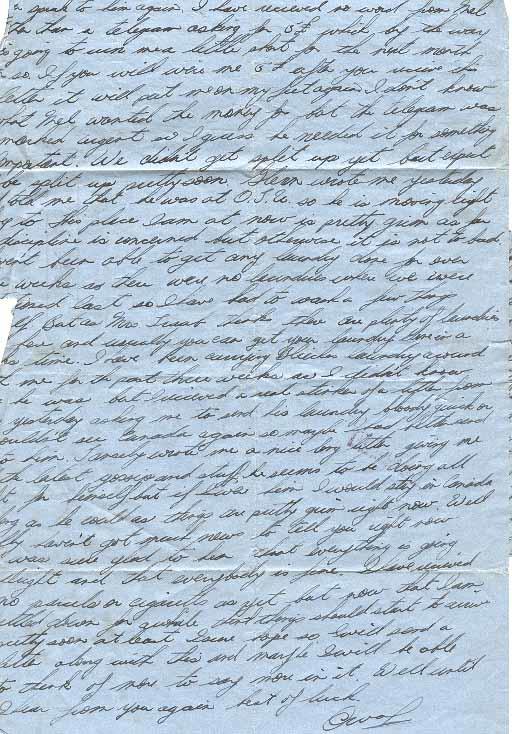 speak to him again. I have received no word from Mel
than a telegram asking for 5£ which by the way
is going to win me a little short for the next month
so. If you will wire me 5£ after you receive this
letter it will put me on my feet again. I don't know
what Mel wanted the money for but the telegram was
marked urgent so I guess he needed it for something
important. We didn't get split up yet but expect
be split up pretty soon. wrote me yesterday
told me that he was at O.T.U. so he is moving right
This place I am at now is pretty grim as far
discipline is concerned but otherwise it is not to bad.
haven't been able to get any laundry done for over
weeks as there were no laundries where we were
last so I have had to wash a few things
But as Mrs thinks there are plenty of laundries
here and usually you can get your laundry done in a
time. I have been carrying laundry around
me for the past three weeks as I didn't know
he was but I received a real of a letter from
yesterday asking me to send his laundry bloody quick or
wouldn't see Canada again so maybe I had better send
to him. wrote me a nice long letter giving me
the latest gossip and stuff, he seems to be doing all
for himself but if I was him I would stay in Canada
long as he could as things are pretty grim right now. Well
haven't got much news to tell you right now
was sure glad to hear that everything is going
alright and that everybody is fine. I have received
no parcels or cigarettes as yet but now that I am
settled down for awhile that things should start to arrive
pretty soon at least I sure hope so. I will send a
letter along with this and maybe I will be able
to think of more to say more in it. Well until
I hear from you again best of luck